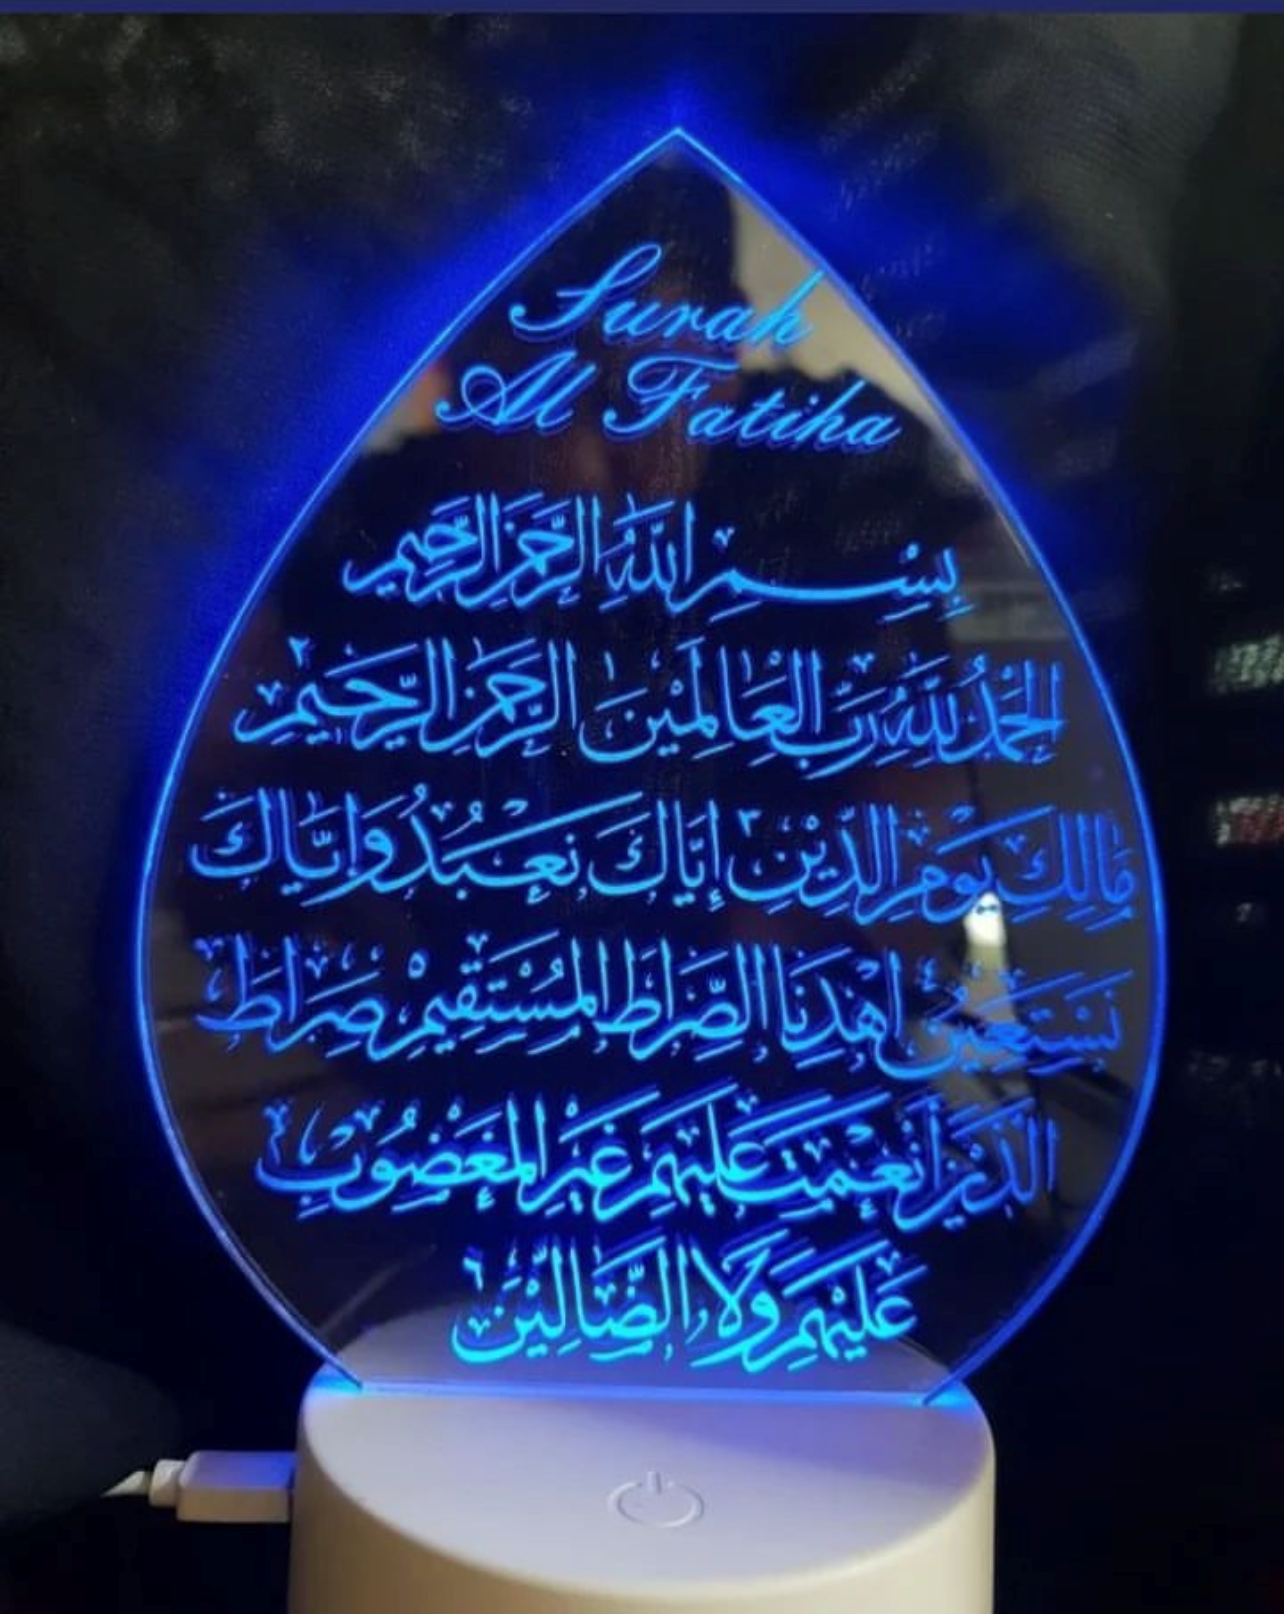 Surah
Al Fatiha
بِسْــمِ اللَّهِ الرَّحْمَٰنِ الرَّحِيمِ
الْحَمْدُ لِلَّهِ رَبِّ الْعَالَمِيْنَ ١ الرَّحْمَٰنِ الرَّحِيْمِ ٢
مَالِكِ يَوْمِ الدِّيْنِ ٣ إِيَّاكَ نَعْبُدُ وَإِيَّاكَ
نَسْتَعِيْنُ ٤ اهْدِنَا الصِّرَاطَ الْمُسْتَقِيْمَ ٥ صِرَاطَ
الَّذِيْنَ أَنْعَمْتَ عَلَيْهِمْ غَيْرِ الْمَغْضُوْبِ
عَلَيْهِمْ وَلَا الضَّالِّيْنَ ٦